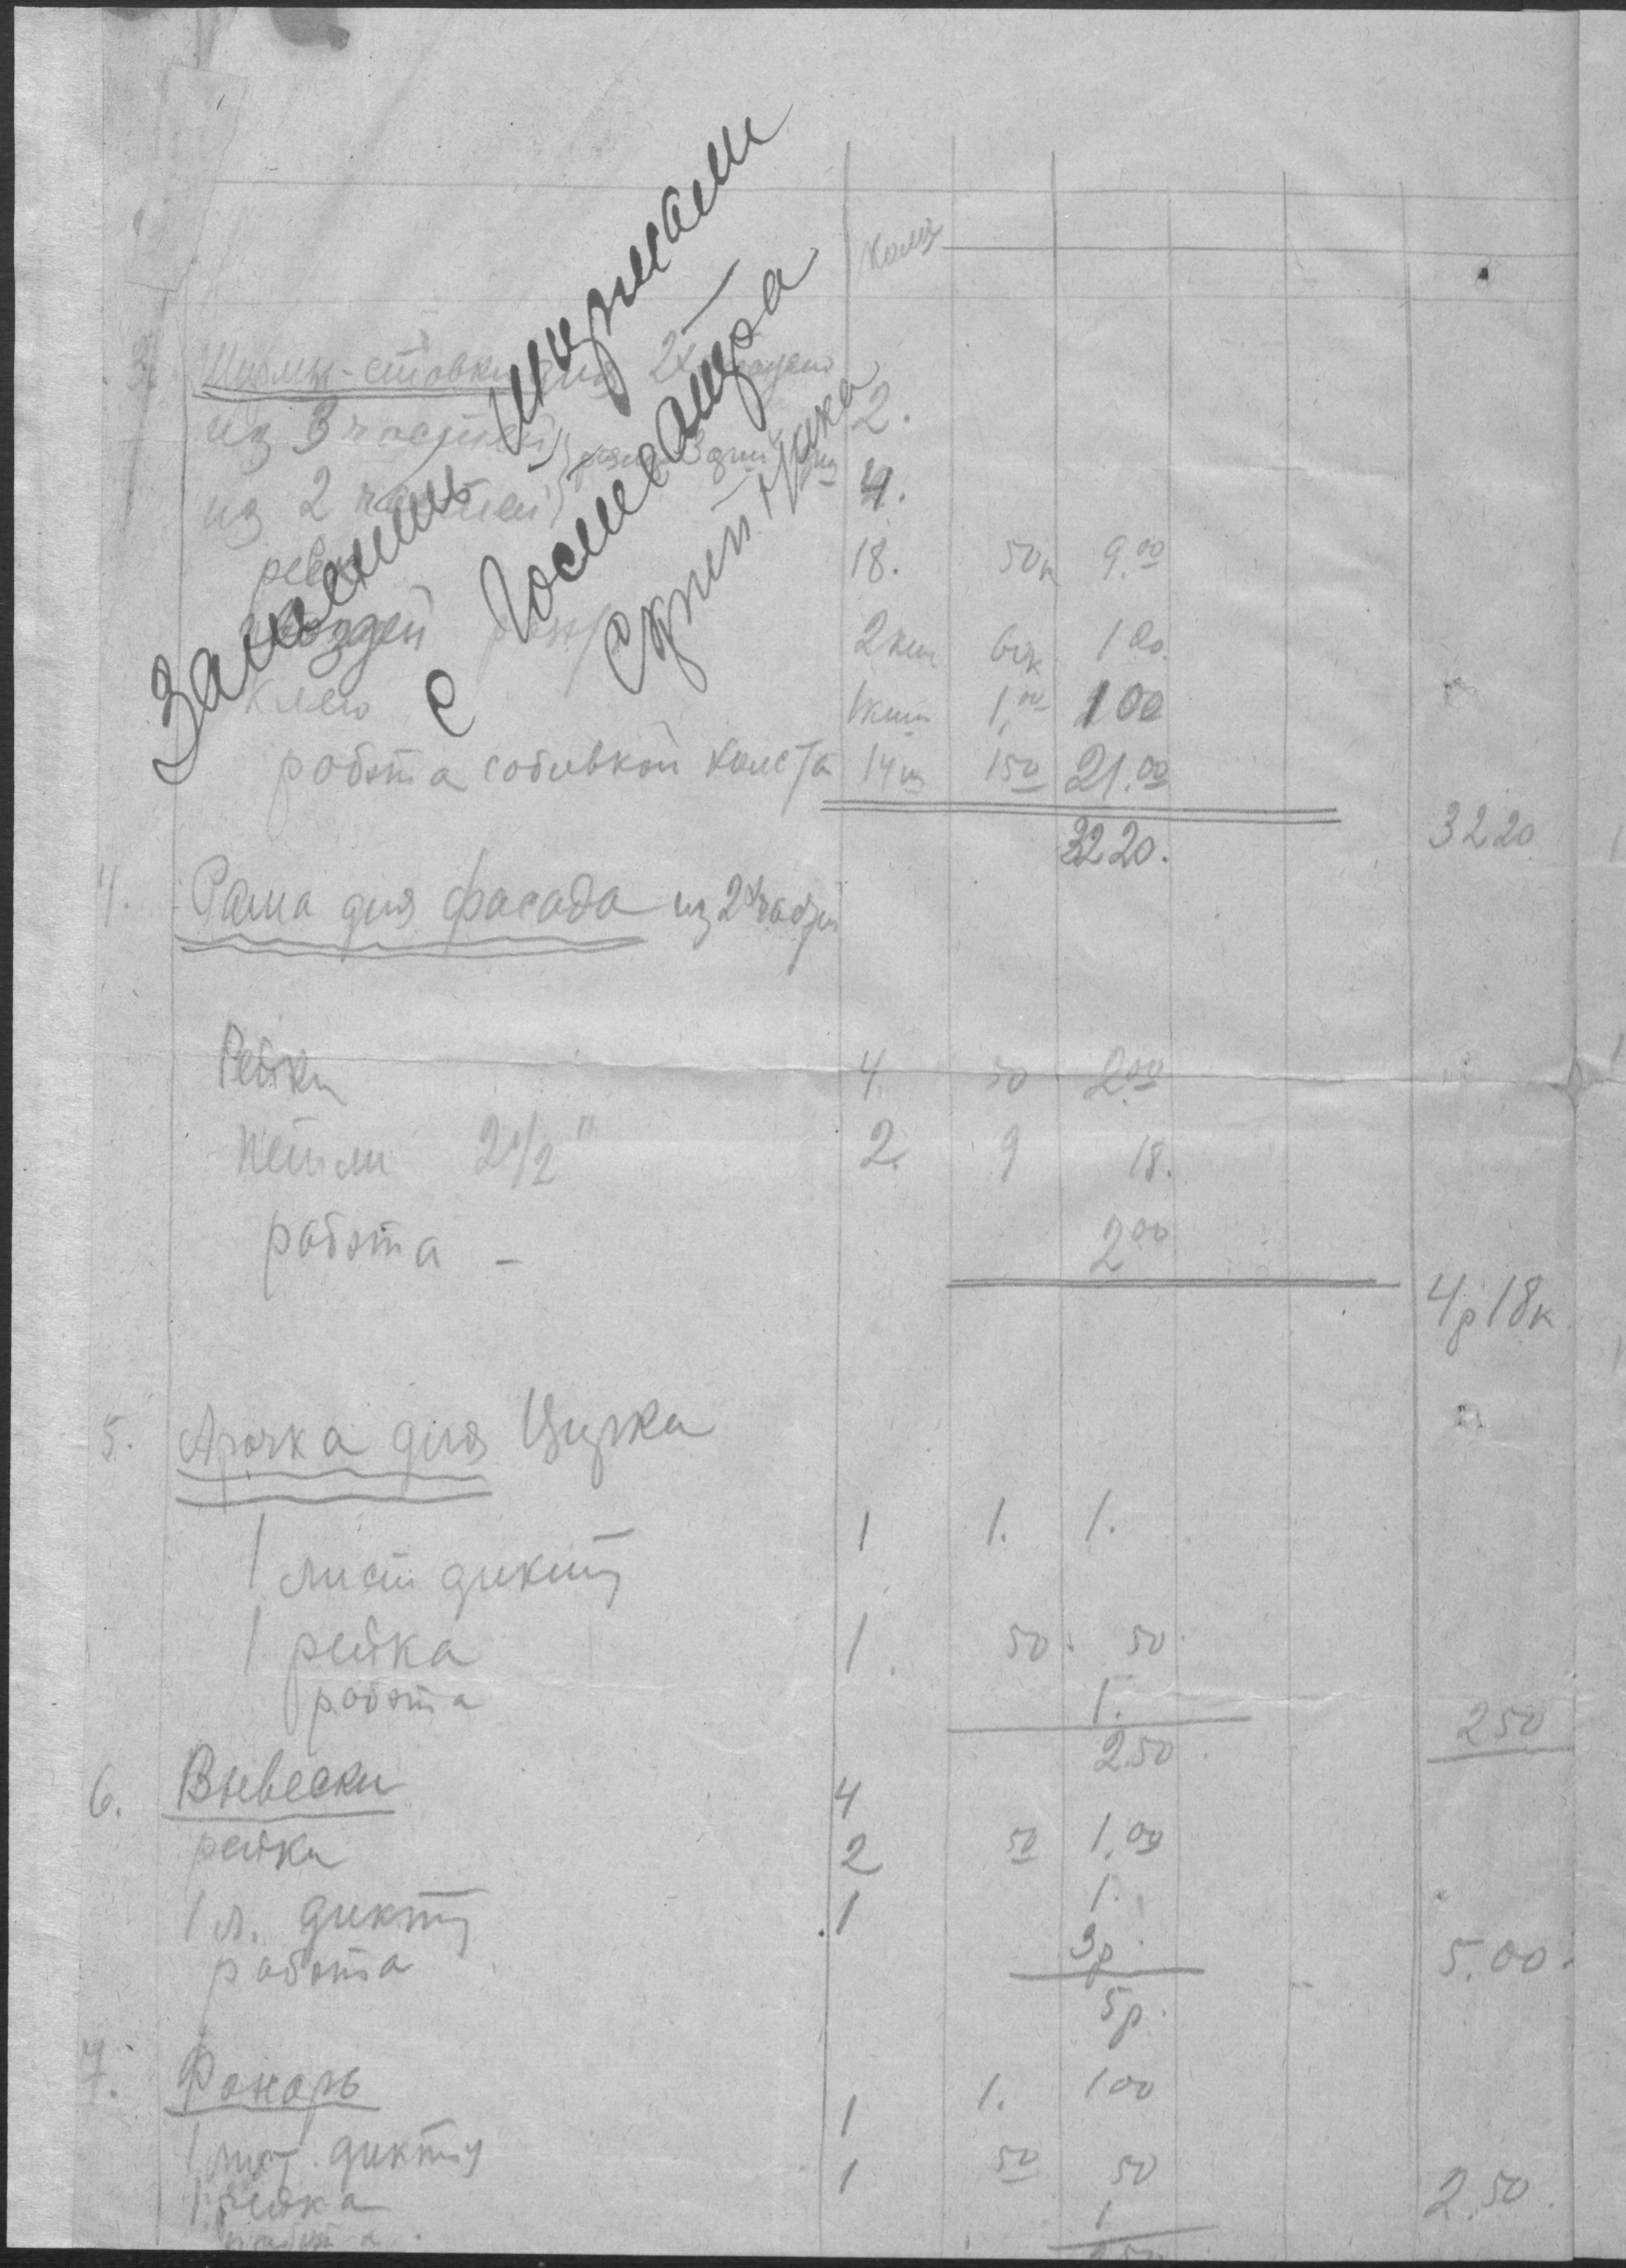 Заменить ширмами
с Госмеващра
Скрипника
колич
3. Ширмы-ставки для 2х
из 3 частей 2.
из 2 частей 4.
рейк 18. 50к 9.00
гвоздей 2 кил 60к 1 20.
клею 1 кил 1.00 1 00
работа с обивкой холста 14 ш 1 50 21.00
32 20. 32 20
4. Рама для фасада из 2х частей
Рейки 4 50 2.00
петли 2 1/2" 2. 9 18.
работа - 2 00
4р 18к
5. Арочка для Цирка
1 лист дикту 1 1. 1.
1 рейка 1. 50. 50.
работа 1.
2.50. 2 50
6. Вывески 4
рейки 2 50 1.00
1 л. дикту 1 1.
работа 3р.
5р. 5.00.
7. Фонарь
1 лист. дикту 1 1. 1 00
1 рейка 1 50 50
работа. 1 2.50.